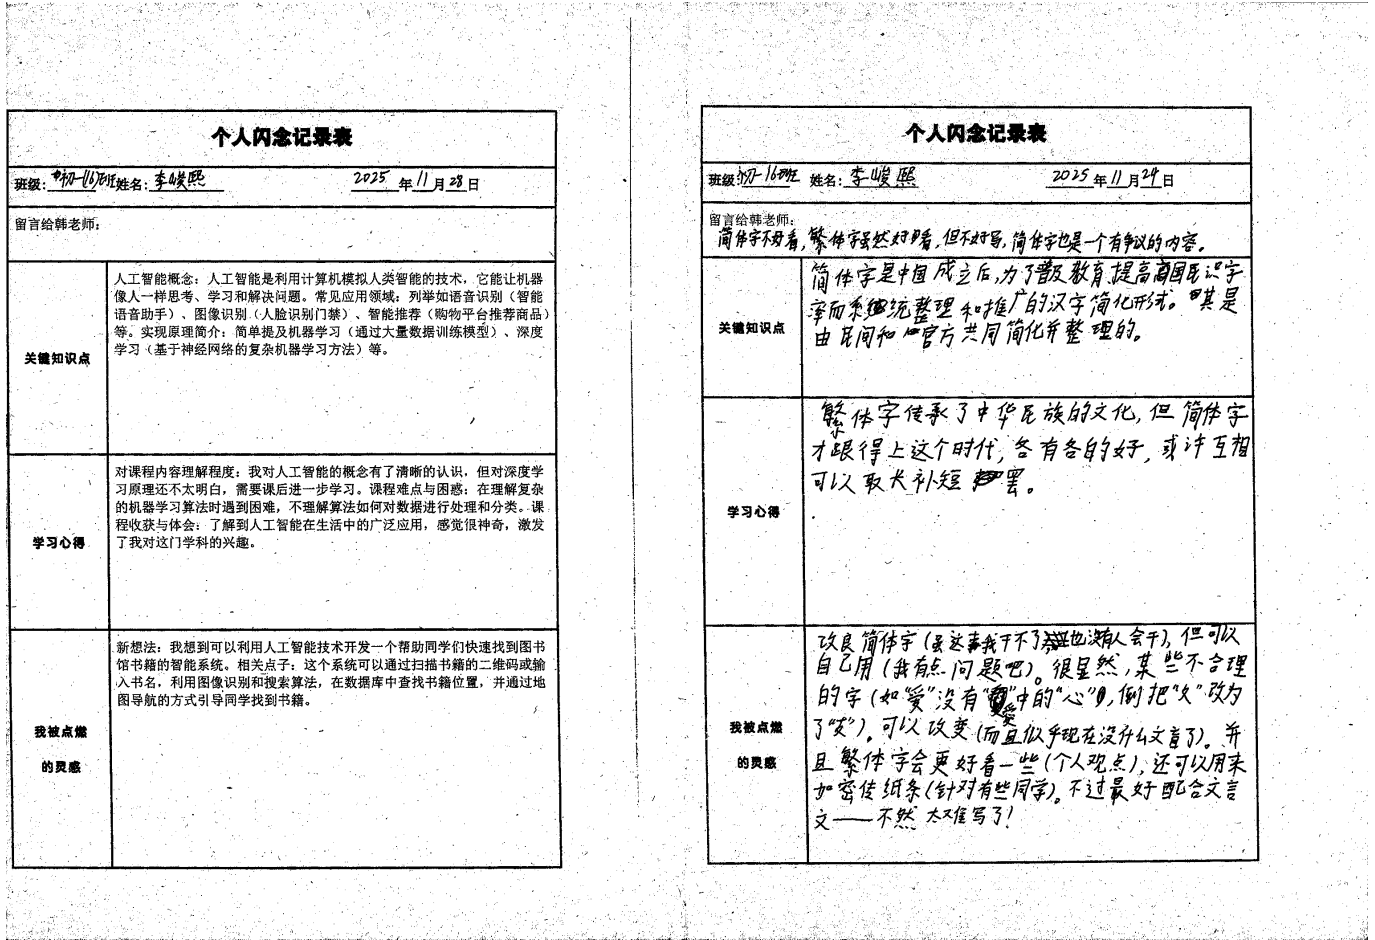 个人闪念记录表
班级:初一(16)班 姓名:李峻熙 2025年11月28日
留言给韩老师:
关键知识点
人工智能概念:人工智能是利用计算机模拟人类智能的技术,它能让机器
像人一样思考、学习和解决问题。常见应用领域:列举如语音识别(智能
语音助手)、图像识别(人脸识别门禁)、智能推荐(购物平台推荐商品)
等。实现原理简介:简单提及机器学习(通过大量数据训练模型)、深度
学习(基于神经网络的复杂机器学习方法)等。
学习心得
对课程内容理解程度:我对人工智能的概念有了清晰的认识,但对深度学
习原理还不太明白,需要课后进一步学习。课程难点与困惑:在理解复杂
的机器学习算法时遇到困难,不理解算法如何对数据进行处理和分类。课
程收获与体会:了解到人工智能在生活中的广泛应用,感觉很神奇,激发
了我对这门学科的兴趣。
我被点燃
的灵感
新想法:我想到可以利用人工智能技术开发一个帮助同学们快速找到图书
馆书籍的智能系统。相关点子:这个系统可以通过扫描书籍的二维码或输
入书名,利用图像识别和搜索算法,在数据库中查找书籍位置,并通过地
图导航的方式引导同学找到书籍。
个人闪念记录表
班级:初一16班 姓名:李峻熙 2025年11月24日
留言给韩老师:
简体字不好看,繁体字虽然好看,但不好写,简体字也是一个有争议的内容。
关键知识点
简体字是中国成立后,为了普及教育,提高国民识字
率而系统整理和推广的汉字简化形式。其是
由民间和官方共同简化并整理的。
学习心得
繁体字传承了中华民族的文化,但简体字
才跟得上这个时代,各有各的好,或许互相
可以取长补短罢。
我被点燃
的灵感
改良简体字(虽这事我干不了也没有人会干),但可以
自己用(我有点问题吧)。很显然,某些不合理
的字(如“爱”没有“愛”中的“心”,倒把“夂”改为
了“友”)。可以改变(而且似乎现在没什么文盲了)。并
且繁体字会更好看一些(个人观点),还可以用来
加密传纸条(针对有些同学)。不过最好配合文言
文——不然太难写了!